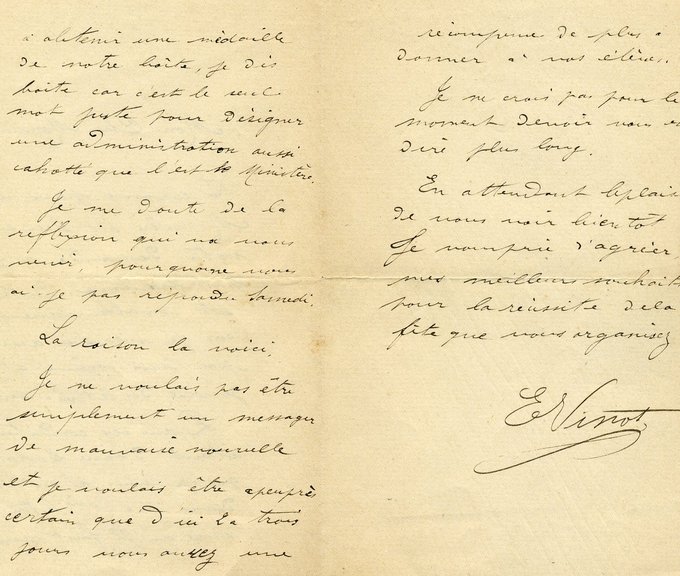 à obtenir une médaille
de notre boîte, je dis
boîte car c'est le seul
mot juste pour désigner
une administration aussi
cahotée que l'est le Ministère.
Je me doute de la
réflexion qui va vous
venir, pourquoi ne vous
ai-je pas répondu Samedi.
La raison la voici.
Je ne voulais pas être
simplement un messager
de mauvaise nouvelle
et je voulais être apeuprès
certain que d'ici 2 a trois
jours vous aurez une
récompense de plus à
donner à vos élèves.
Je ne crois pas pour le
moment devoir vous en
dire plus long.
En attendant le plais
de vous voir bientôt
Je vous prie d'agréer,
mes meilleurs souhaits
pour la réussite de la
fête que vous organisez
E Vinot